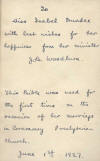 To
Miss Isabel Dundas
with best wishes for her
happiness from her minister
J.A. Woodburn.
This Bible was used for
the first time on the
occasion of her marriage
in Presbyterian
Church.
June 1st 1927.